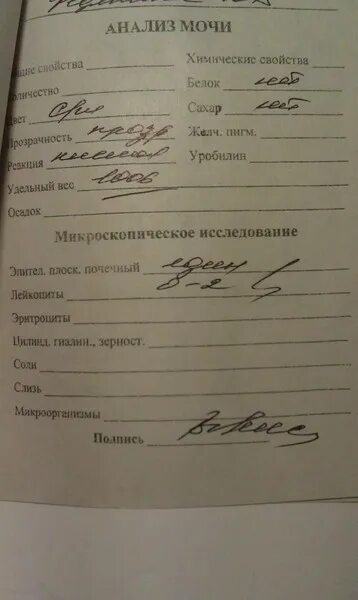 АНАЛИЗ МОЧИ
щие свойства Химические свойства
оличество Белок нет
вет с/ж Сахар нет
Прозрачность прозр Желч. пигм.
Реакция кислая Уробилин
Удельный вес 1006
Осадок
Микроскопическое исследование
Эпител. плоск. почечный един
Лейкоциты 0-2
Эритроциты
Цилинд. гиалин., зерност.
Соли
Слизь
Микроорганизмы
Подпись